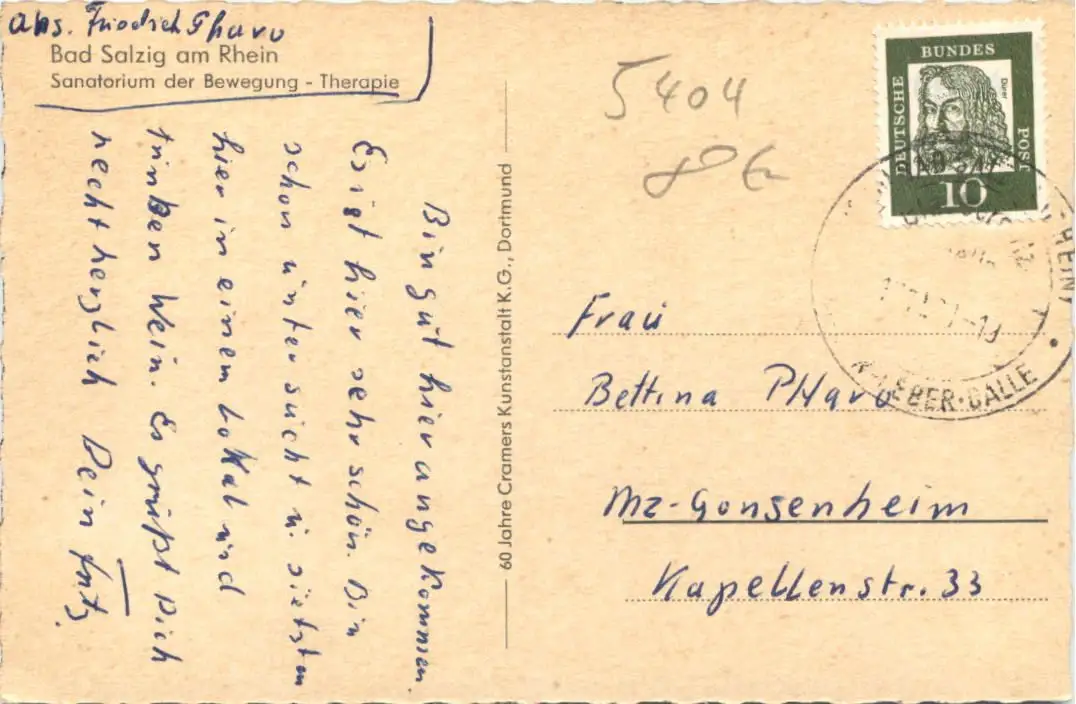 Abs. Friedrich Pharo
Bad Salzig am Rhein
Sanatorium der Bewegung - Therapie
Bin gut hier angekommen.
Es ist hier sehr schön. Bin
schon untersucht u. sietzten
hier in einem Lokal und
trinken Wein. Es grüßt Dich
recht herzlich Dein Fritz.
60 Jahre Cramers Kunstanstalt K.G., Dortmund
5404
8€
DEUTSCHE BUNDESPOST
Dürer
10
LEBER · GALLE
Frau
Bettina PHaro
Mz-Gonsenheim
Kapellenstr. 33